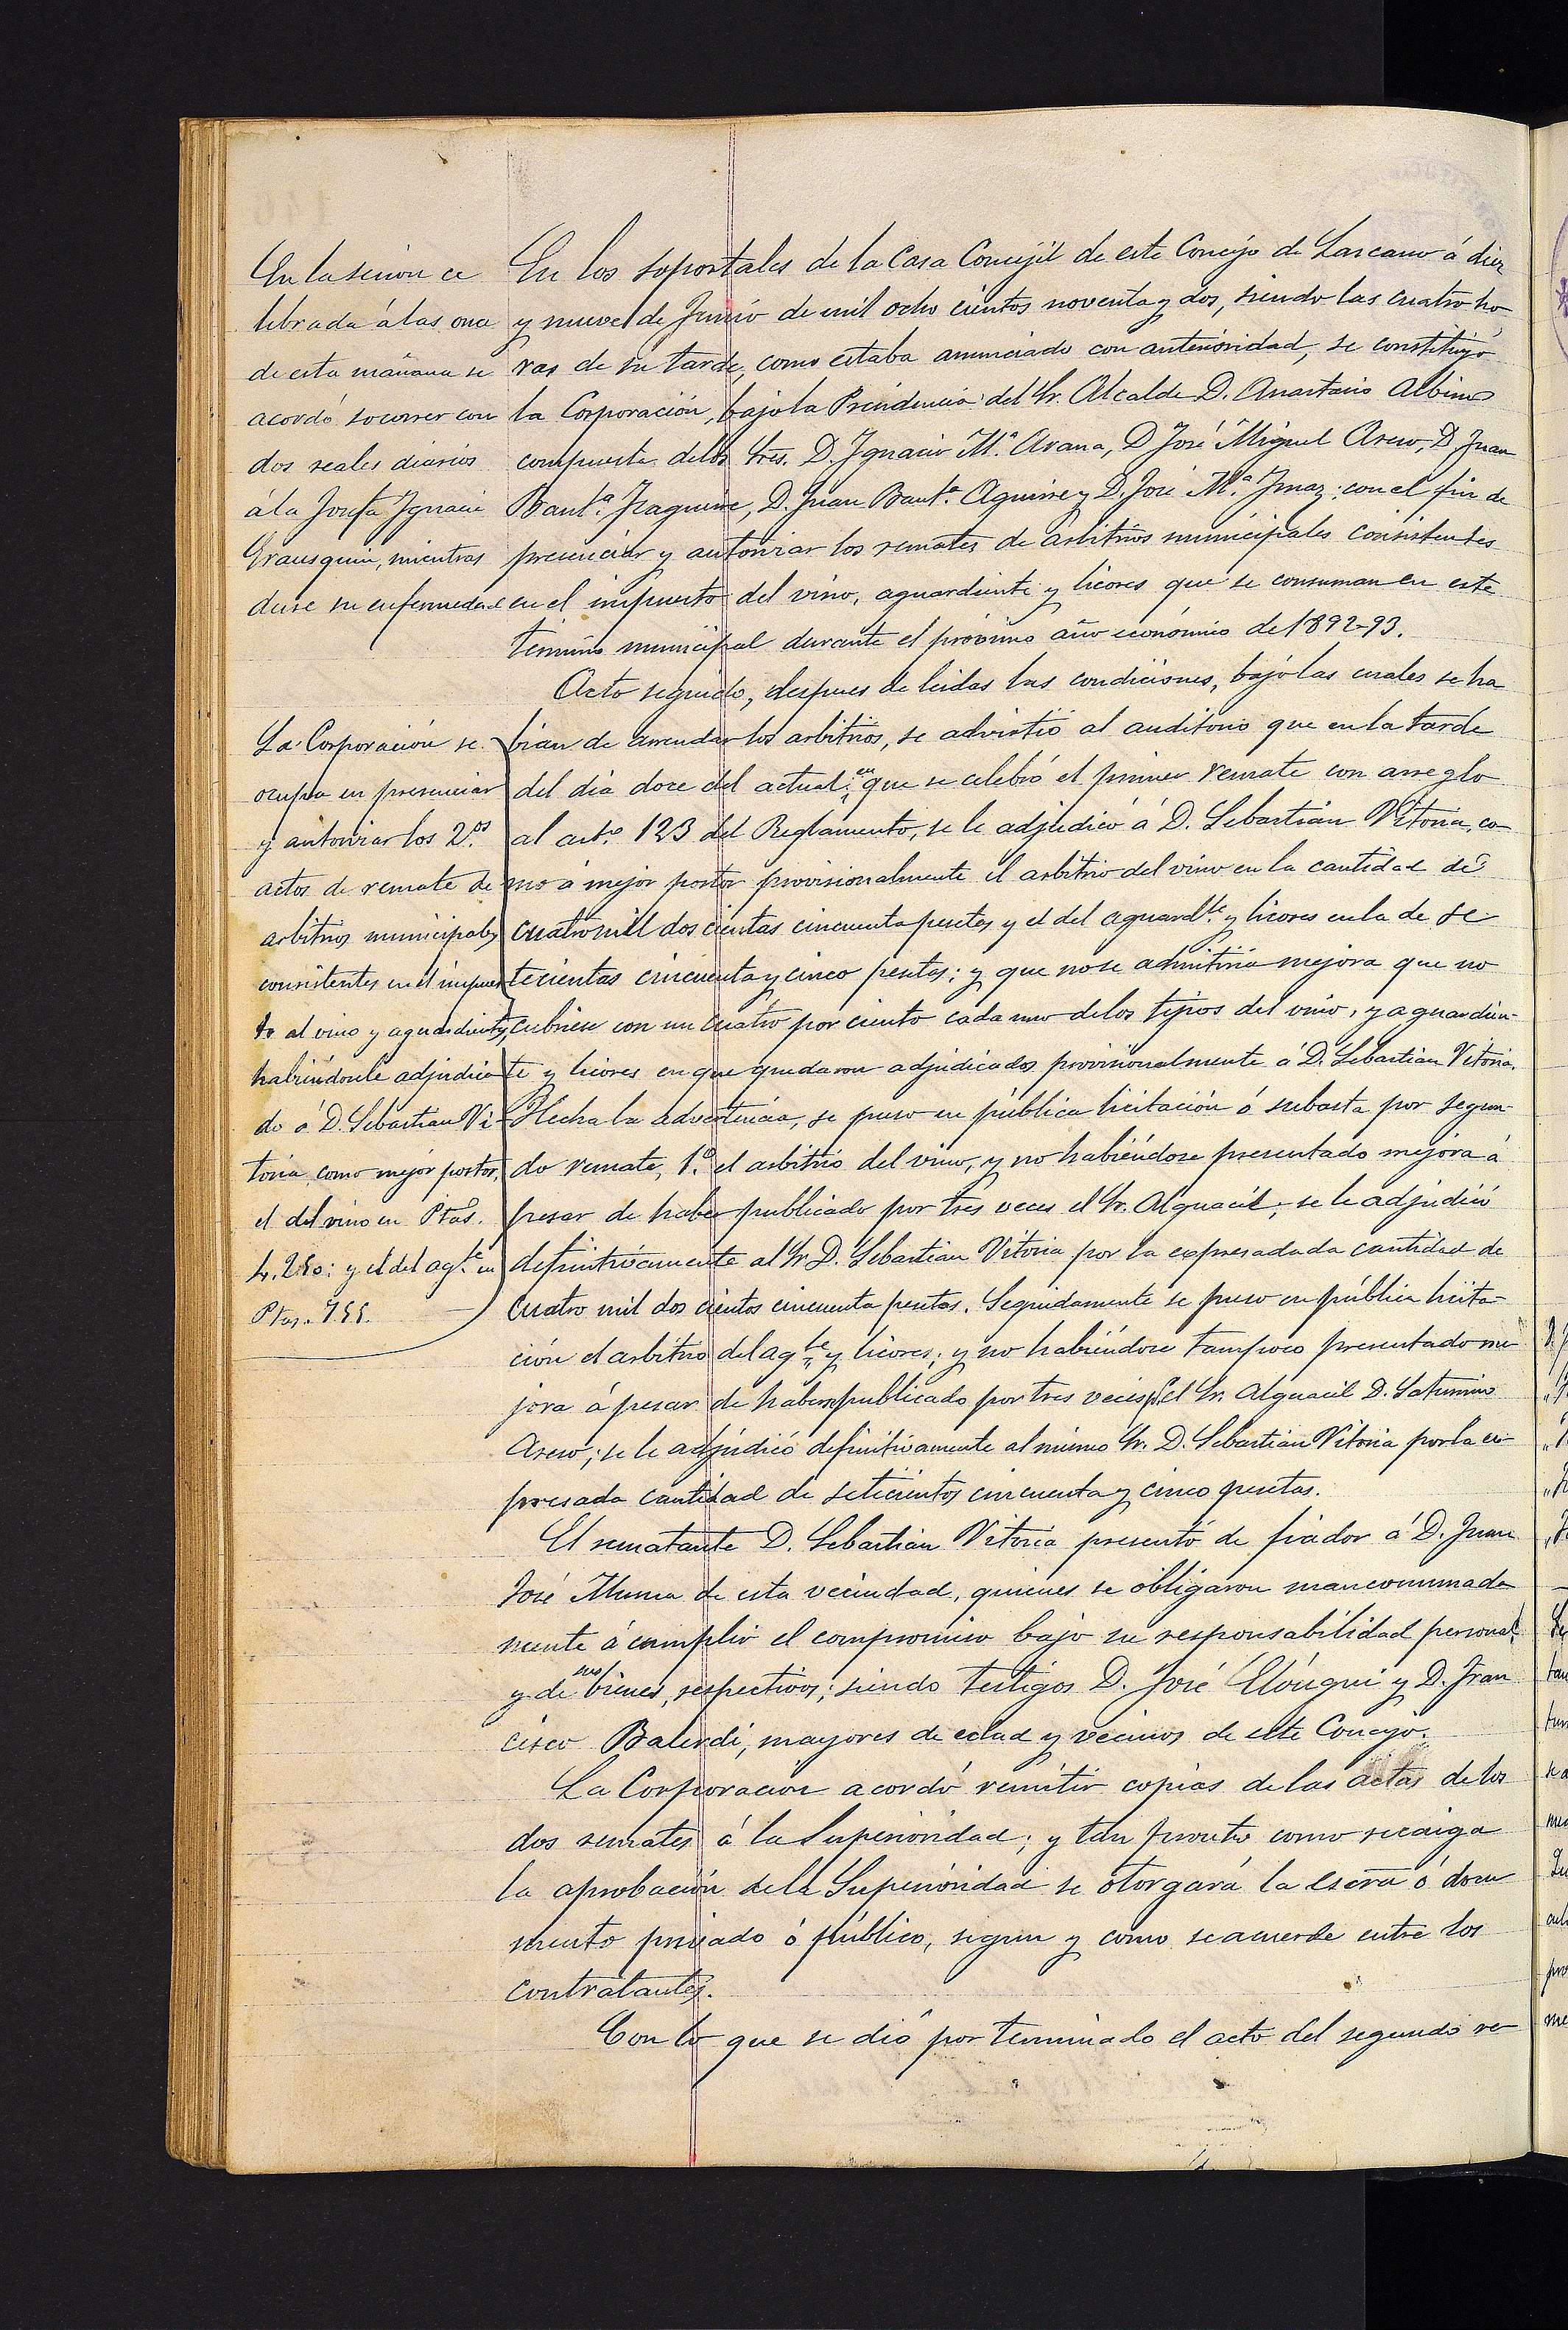 En la sesion ce
lebrada á las once
de esta mañana se
acordó socorrer con
dos reales diarios
á la Josefa Ignacia
Grausquin, mientras
dure su enfermedad
La Corporación se
ocupa en presenciar
y autorizar los 2.os
actos de remate de
arbitrios municipales
consistentes en el impues
to al vino y aguardiente,
habiéndosele adjudica
do á D. Sebastian Vi-
toria, como mejor postor,
el del vino en Ptas.
4.250: y el del ag.te en
Ptas. 755.
En los soportales de la Casa Concejil de este Concejo de Lazcano á diez
y nueve de Junio de mil ocho cientos noventa y dos, siendo las cuatro ho
ras de su tarde, como estaba anunciado con anterioridad, se constituyó
la Corporación, bajo la Presidencia del Sr. Alcalde D. Anastasio Albinos
compuesta de los Sres. D. Ignacio M.ª Arana, D José Miguel Aseso, D. Juan
Baut.ª Izaguirre, D. Juan Baut.ª Aguirre y D. José M.ª Imaz; con el fin de
presenciar y autorizar los remates de arbitrios municipales consistentes
en el impuesto del vino, aguardiente y licores que se consuman en este
término municipal durante el próximo año económico de 1892-93.
Acto seguido, despues de leidas las condiciones, bajo las cuales se ha
bian de arrendar los arbitrios, se advirtió al auditorio que en la tarde
del dia doce del actual, en que se celebró el primer remate con arreglo
al art.º 123 del Reglamento, se le adjudicó á D. Sebastián Vitoria, co-
mo á mejor postor provisionalmente el arbitrio del vino en la cantidad de
cuatro mil dos cientas cincuenta pesetas y el del aguard.te y licores en la de se
tecientas cincuenta y cinco pesetas; y que no se admitiria mejora que no
cubriese con un cuatro por ciento cada uno de los tipos del vino, y aguardien-
te y licores en que quedaron adjudicados provisionalmente á D. Sebastian Vitoria.
Hecha la advertencia, se puso en pública licitación ó subasta por segun-
do remate, 1.º el arbitrio del vino, y no habiéndose presentado mejora á
pesar de haber publicado por tres veces el Sr. Alguacil, se le adjudicó
definitivamente al Sr D. Sebastian Vitoria por la expresadada cantidad de
cuatro mil dos cientos cincuenta pesetas. Seguidamente se puso en pública licita-
ción el arbitrio del ag.te y licores; y no habiéndose tampoco presentado me
jora á pesar de haberse publicado por tres veces p.r el Sr. Alguacil D. Saturnino
Aseso; se le adjudicó definitivamente al mismo Sr. D. Sebastian Vitoria por la ex-
presada cantidad de setecientos cincuenta y cinco pesetas.
El rematante D. Sebastian Vitoria presentó de fiador á D. Juan
José Munua de esta vecindad, quienes se obligaron mancomunada
mente á cumplir el compromiso bajo su responsabilidad personal
y de sus bienes, respectivos; siendo testigos D. José Elóregui y D. Fran
cisco Balerdi, mayores de edad y vecinos de este Concejo.
La Corporación acordó remitir copias de las actas de los
dos remates á la Superioridad; y tan pronto como recaiga
la aprobación de la Superioridad se otorgará la escra ó docu
mento privado ó público, segun y como se acuerde entre los
contratantes.
Con lo que se dió por terminado el acto del segundo re-